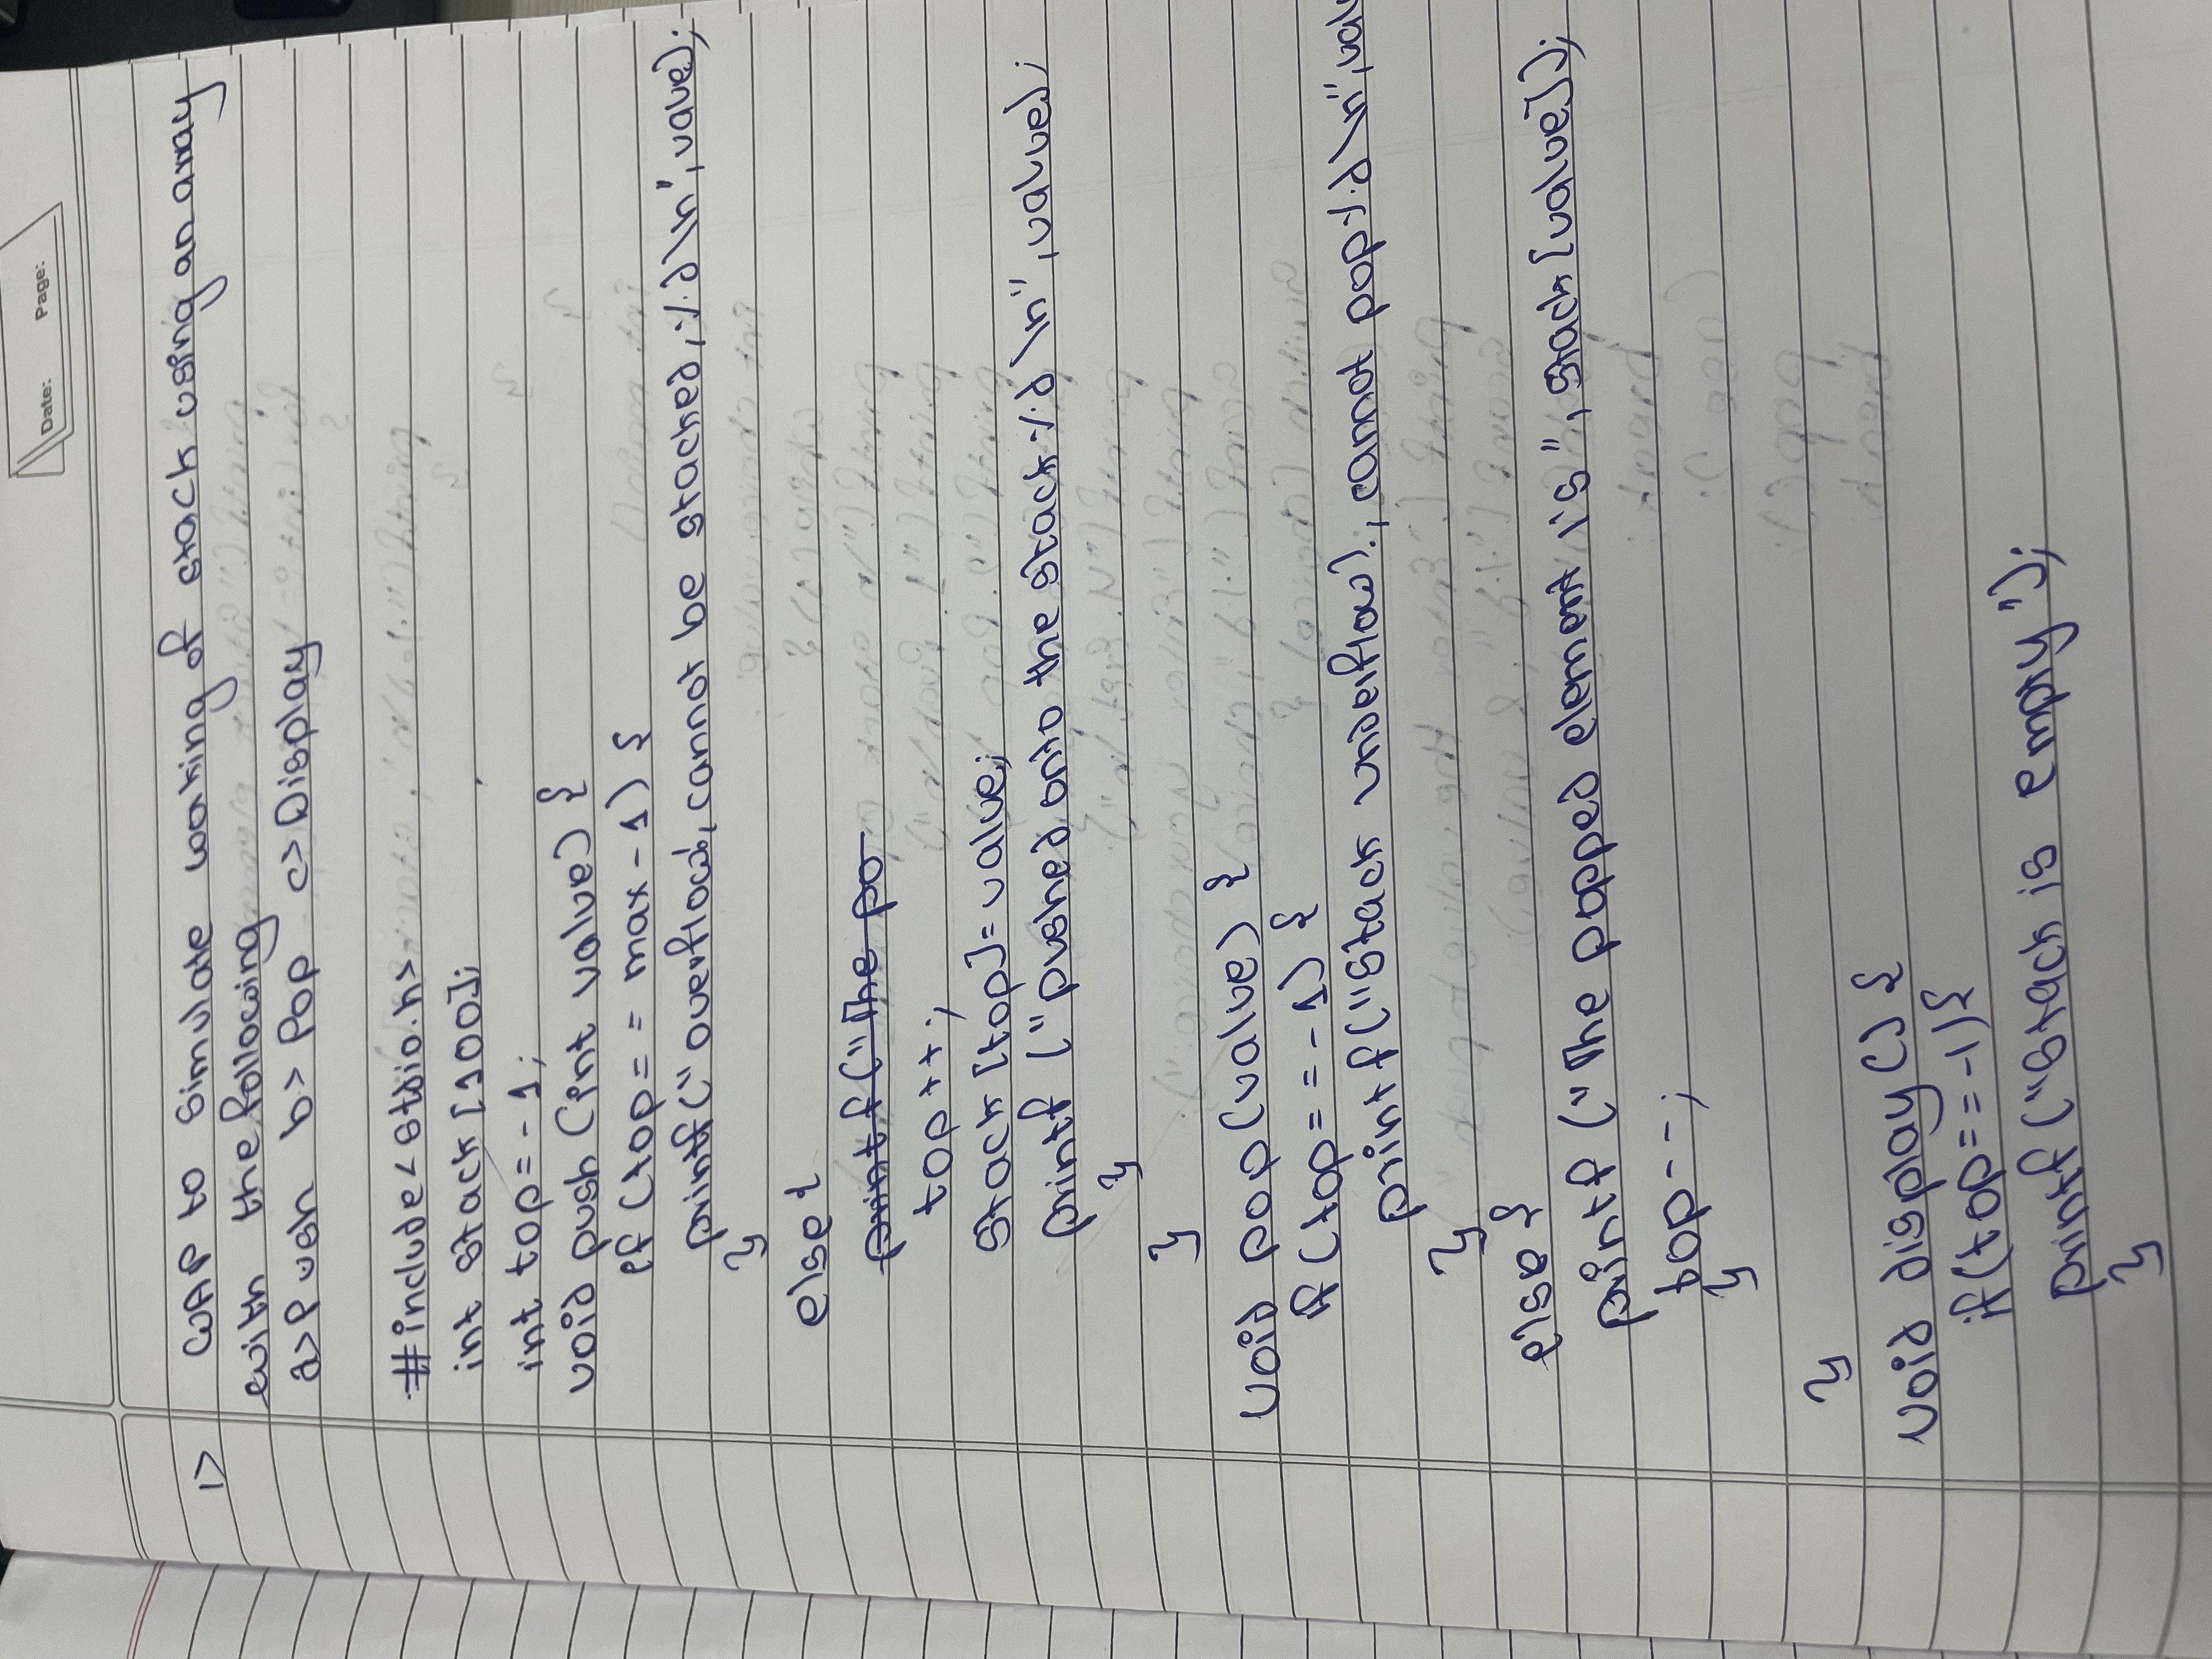 Date: Page:
1> WAP to Simulate working of stack using an array
with the following
a>Push b> Pop c>Display
#include<stdio.h>
int stack [100];
int top=-1;
void push (int value) {
if (top== max-1) {
printf("overflow!, cannot be stacked, %d\n", value);
}
else{
printf("The po
top++;
stack [top]=value;
printf ("pushed onto the stack %d \n", value);
}
}
void pop(value) {
if (top==-1) {
printf("Stack underflow!, cannot pop %d\n", val
}
else {
printf ("The popped element is", stack [value]);
top--;
}
}
void display() {
if(top==-1){
printf("Stack is empty");
}